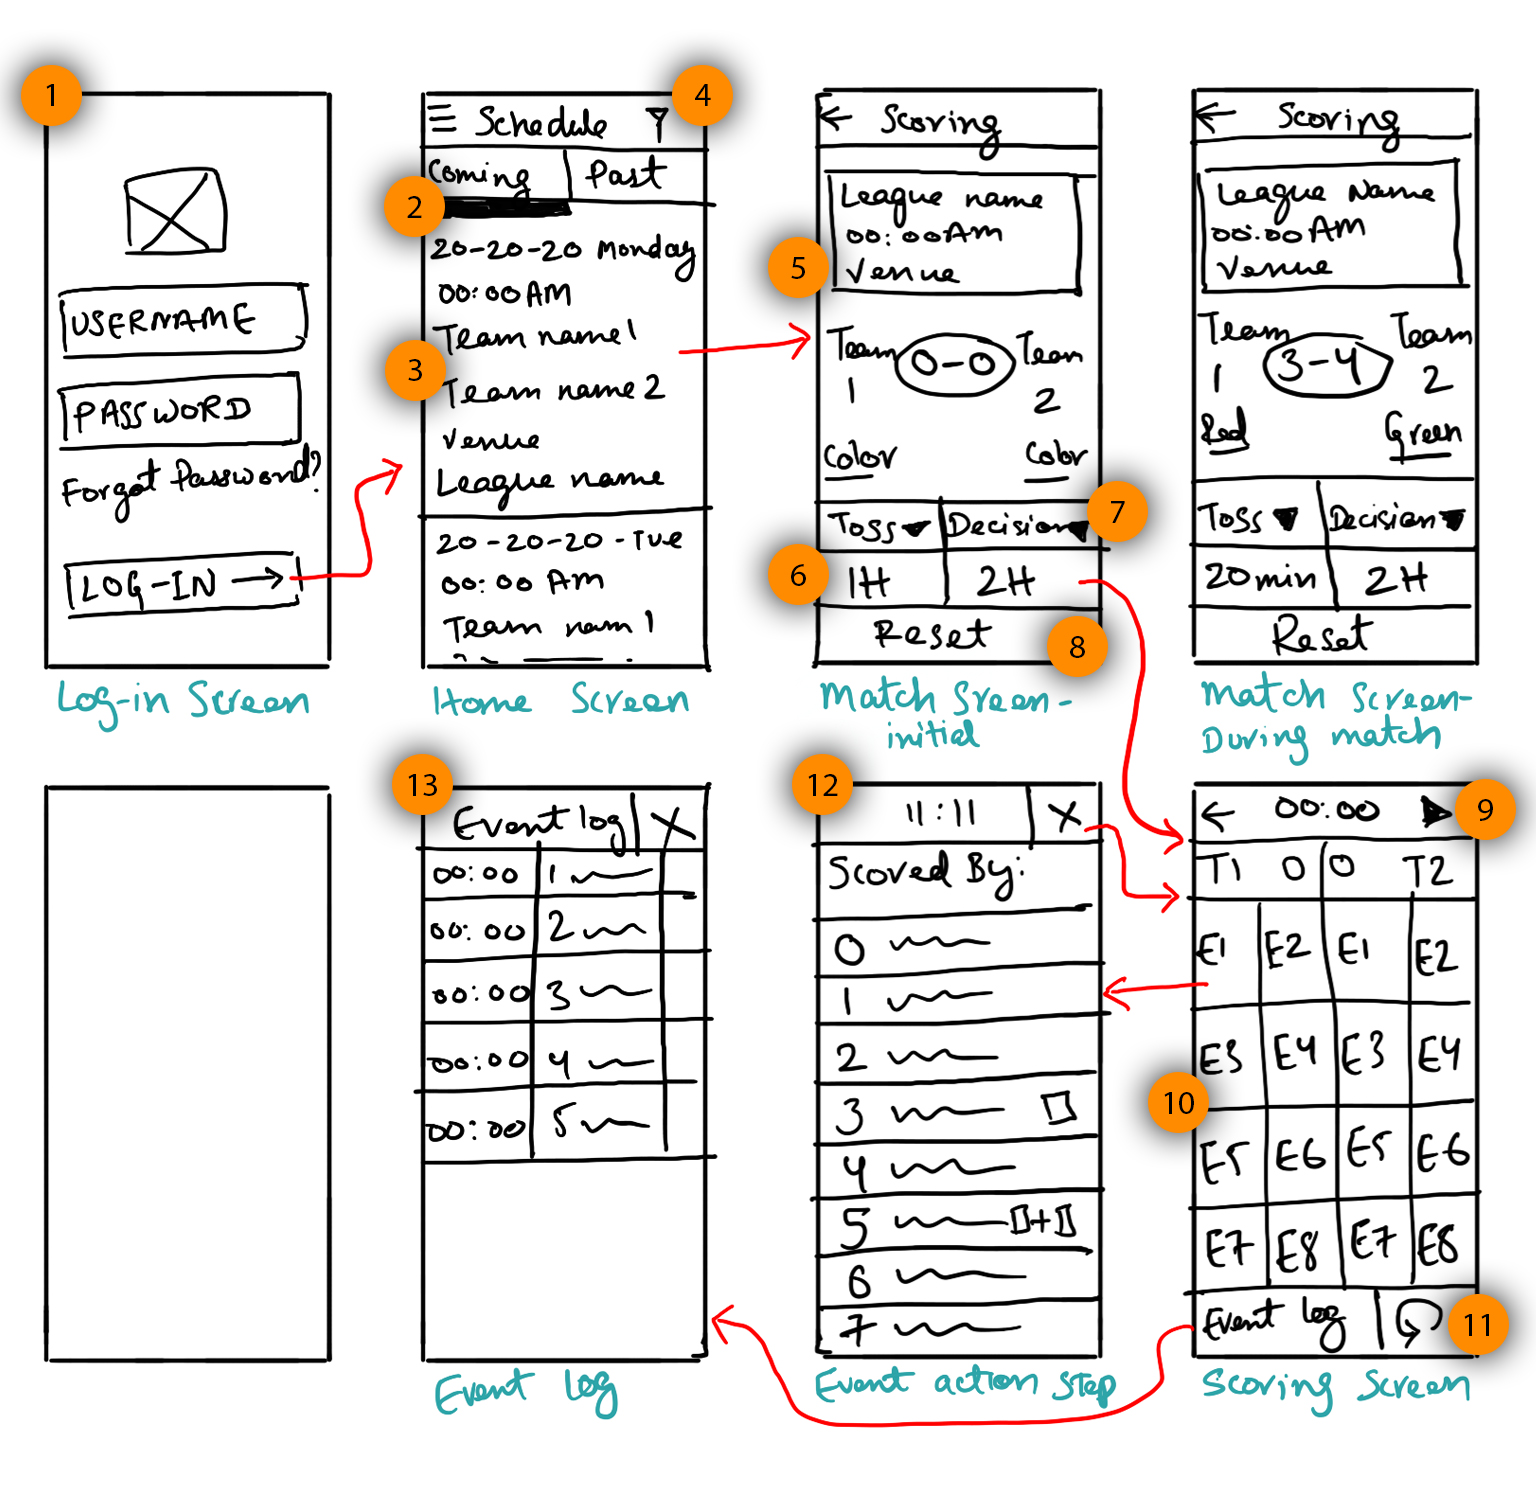 1
USERNAME
PASSWORD
Forgot Password?
LOG-IN →
Log-in Screen
4
Schedule
Coming Past
2
20-20-20 Monday
00:00 AM
Team name 1
3
Team name 2
Venue
League name
20-20-20 - Tue
00:00 AM
Team nam 1
Home Screen
← Scoring
League name
00:00 AM
5
Venue
Team 1 0-0 Team 2
Color Color
7
Toss Decision
6
1H 2H
Reset
8
Match Sreen-
initial
← Scoring
League Name
00:00 AM
Venue
Team 1 3-4 Team 2
Red Green
Toss Decision
20 min 2H
Reset
Match Screen-
During match
13
Event log X
00:00 1
00:00 2
00:00 3
00:00 4
00:00 5
Event Log
12
11:11 X
Scored By:
0
1
2
3
4
5 +
6
7
Event action step
← 00:00
9
T1 0 0 T2
E1 E2 E1 E2
E3 E4 E3 E4
10
E5 E6 E5 E6
E7 E8 E7 E8
Event log
11
Scoring Screen